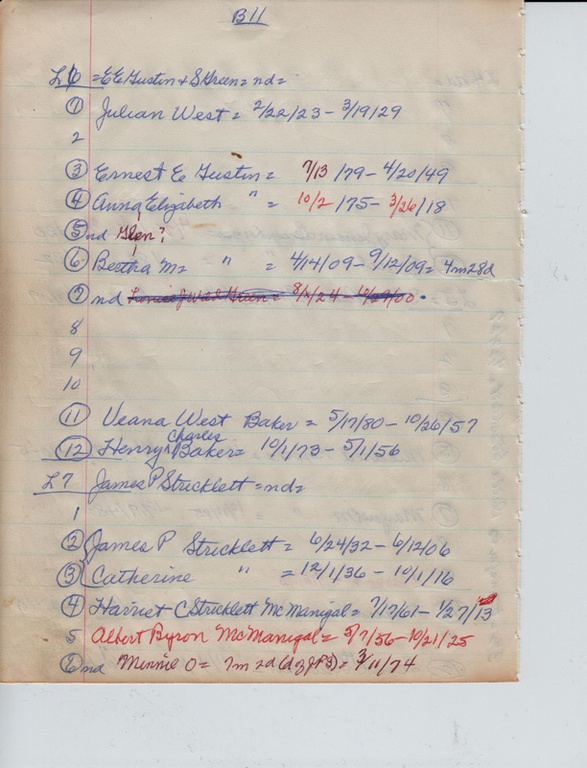 B11
L6 = E E Gustin + S Green = nd =
① Julian West = 2/22/23 - 3/19/29
2
③ Ernest E Gustin = 7/13/79 - 4/20/49
④ Anna Elizabeth " = 10/2/75 - 3/26/18
⑤ nd Glen?
⑥ Bertha M = " " = 4/14/09 - 9/12/09 = 4m28d
⑦ nd
8
9
10
⑪ Veana West Baker = 5/17/80 - 10/26/57
⑫ Henry Charles Baker = 10/1/73 - 5/1/56
L7 James P Stricklett = nd =
1
② James P Stricklett = 6/24/32 - 6/12/06
③ Catherine " = 12/1/36 - 10/1/16
④ Harriet C Stricklett McManigal = 7/17/61 - 1/27/13
5 Albert Byron McManigal = 5/7/56 - 10/21/25
⑥ nd Minnie O = 7m 2d (d of JPS) = 3/11/74